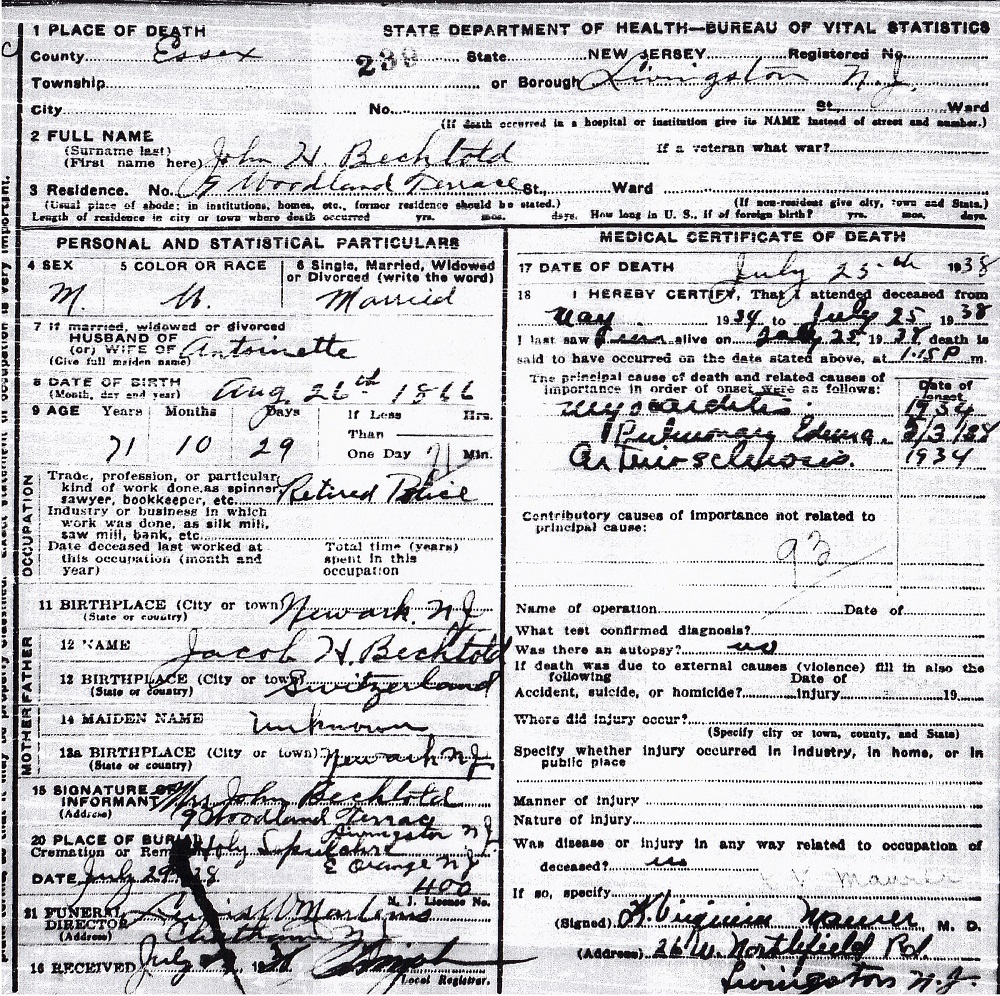 1 PLACE OF DEATH STATE DEPARTMENT OF HEALTH—BUREAU OF VITAL STATISTICS
County Essex 239 State NEW JERSEY Registered No.
Township or Borough Livingston N.J.
City No. St., Ward
(If death occurred in a hospital or institution give its NAME instead of street and number.)
2 FULL NAME
(Surname last)
(First name here) John H. Bechtold If a veteran what war?
3 Residence. No. 9 Woodland Terrace St., Ward
(Usual place of abode: in institutions, homes, etc., former residence should be stated.) (If non-resident give city, town and State.)
Length of residence in city or town where death occurred yrs. mos. days. How long in U. S., if of foreign birth? yrs. mos. days.
PERSONAL AND STATISTICAL PARTICULARS
4 SEX 5 COLOR OR RACE 6 Single, Married, Widowed
or Divorced (write the word)
M. W. Married
7 If married, widowed or divorced
HUSBAND OF
(or) WIFE OF Antoinette
(Give full maiden name)
8 DATE OF BIRTH Aug 26th 1866
(Month, day and year)
9 AGE Years Months Days If Less Hrs.
Than
71 10 29 One Day 71 Min.
OCCUPATION
Trade, profession, or particular
kind of work done, as spinner,
sawyer, bookkeeper, etc. Retired Police
Industry or business in which
work was done, as silk mill,
saw mill, bank, etc.
Date deceased last worked at Total time (years)
this occupation (month and spent in this
year) occupation
11 BIRTHPLACE (City or town) Newark. N.J.
(State or country)
FATHER
12 NAME Jacob H. Bechtold
13 BIRTHPLACE (City or town) Switzerland
(State or country)
MOTHER
14 MAIDEN NAME Unknown
13a BIRTHPLACE (City or town) Newark N.J.
(State or country)
15 SIGNATURE OF
INFORMANT Mrs John Bechtold
(Address) 9 Woodland Terrace
Livingston N.J.
20 PLACE OF BURIAL
Cremation or Holy Sepulchre
E Orange N.J.
DATE July 29 38 400
N. J. License No.
21 FUNERAL
DIRECTOR
(Address) Chatham N.J.
16 RECEIVED July
Local Registrar.
MEDICAL CERTIFICATE OF DEATH
17 DATE OF DEATH July 25th 1938
18 I HEREBY CERTIFY, That I attended deceased from
May 1934 to July 25 1938
I last saw alive on July 25 1938 death is
said to have occurred on the date stated above, at 1.15 P m.
The principal cause of death and related causes of Date of
importance in order of onset were as follows: onset
Myocarditis 1934
Pulmonary Edema. 38
Arteriosclerosis. 1934
Contributory causes of importance not related to
principal cause:
93
Name of operation Date of
What test confirmed diagnosis?
Was there an autopsy? no
If death was due to external causes (violence) fill in also the
following Date of
Accident, suicide, or homicide? injury 19
Where did injury occur?
(Specify city or town, county, and State)
Specify whether injury occurred in industry, in home, or in
public place
Manner of injury
Nature of injury
Was disease or injury in any way related to occupation of
deceased? no
If so, specify
(Signed) K. Virginia Maurer M. D.
(Address) 26 W. Northfield Rd.
Livingston N.J.